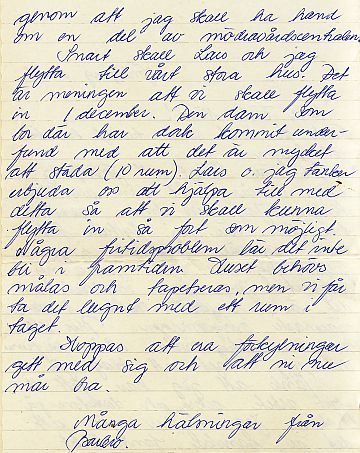 genom att jag skall ha hand
om en del av mödravårdscentralen.
Snart skall Lars och jag
flytta till vårt stora hus. Det
är meningen att vi skall flytta
in 1 december. Den dam som
bor där har dock kommit under-
fund med att det är mycket
att städa (10 rum). Lars o. jag tänker
erbjuda oss att hjälpa till med
detta så att vi skall kunna
flytta in så fort som möjligt.
Några fritidsproblem lär det inte
bli i framtiden. Huset behövs
målas och tapetseras, men vi får
ta det lugnt med ett rum i
taget.
Hoppas att era förkylningar
gett med sig och att ni nu
mår bra.
Många hälsningar från